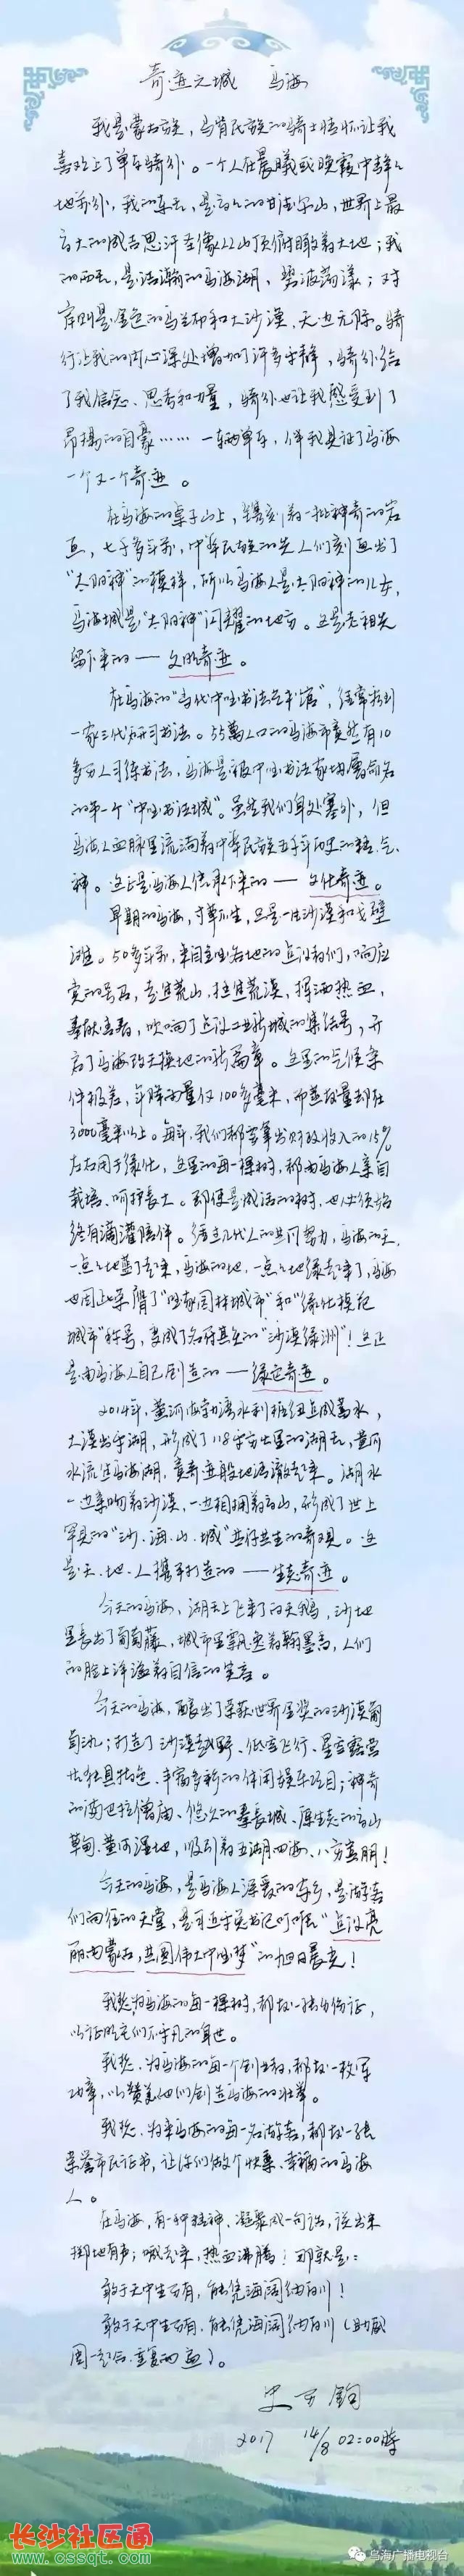 奇迹之城 乌海
我是蒙古族，马背民族的骑士情怀让我
喜欢上了单车骑行。一个人在晨曦或晚霞中静静
地前行，我的东面，是高高的甘德尔山，世界上最
高大的成吉思汗圣像从山顶俯瞰着大地；我
的西面，是浩瀚的乌海湖，碧波荡漾；对
岸则是金色的乌兰布和大沙漠，天边无际。骑
行让我的内心深处增加了许多宁静，骑行给
了我信念、思考和力量，骑行也让我感受到了
昂扬的自豪……一辆单车，伴我见证了乌海
一个又一个奇迹。
在乌海的桌子山上，镌刻着一批神奇的岩
画，七千多年前，中华民族的先人们刻画出了
“太阳神”的模样，所以乌海人是太阳神的儿女，
乌海城是“太阳神”闪耀的地方。这是老祖先
留下来的——文明奇迹。
在乌海的“当代中国书法艺术馆”，经常看到
一家三代研习书法。55萬人口的乌海市竟然有10
多万人习练书法，乌海是被中国书法家协会命名
的第一个“中国书法城”。虽然我们身处塞外，但
乌海人血脉里流淌着中华民族五千年历史的精、气、
神。这正是乌海人传承下来的——文化奇迹。
早期的乌海，寸草不生，只是一片沙漠和戈壁
滩。50多年前，来自全国各地的建设者们，响应
党的号召，走进荒山，挺进荒漠，挥洒热血，
奉献青春，吹响了建设工业新城的集结号，开
启了乌海改天换地的新篇章。这里的气候条
件极差，年降雨量仅100多毫米，而蒸发量却在
3000毫米以上。每年，我们都要拿出财政收入的15%
左右用于绿化，这里的每一棵树，都由乌海人亲自
栽培、呵护长大。即使是成活的树，也必须始
终有滴灌陪伴。经过几代人的共同努力，乌海的天，
一点点地蓝起来，乌海的地，一点点地绿起来了，乌海
也因此荣膺了“国家园林城市”和“绿化模范
城市”称号，变成了名符其实的“沙漠绿洲”！这正
是由乌海人自己创造的——绿色奇迹。
2014年，黄河海勃湾水利枢纽建成蓄水，
大漠出平湖，形成了118平方公里的湖面，黄河
水流进乌海湖，竟奇迹般地清澈起来。湖水
一边亲吻着沙漠，一边相拥着高山，形成了世上
罕见的“沙、海、山、城”共存共生的奇观。这
是天、地、人携手打造的——生态奇迹。
今天的乌海，湖面上飞来了白天鹅，沙地
里长出了葡萄藤，城市里飘逸着翰墨香，人们
的脸上洋溢着自信的笑容。
今天的乌海，酿出了荣获世界金奖的沙漠葡
萄酒；打造了沙漠越野、低空飞行、星空露营
等独具特色、丰富多彩的休闲娱乐项目；神奇
的满巴拉僧庙、悠久的秦长城、原生态的高山
草甸、黄河湿地，吸引着五湖四海、八方宾朋！
今天的乌海，是乌海人深爱的家乡，是游客
们向往的天堂，是习近平总书记叮嘱“建设亮
丽内蒙古，共圆伟大中国梦”的旭日晨光！
我想为乌海的每一棵树，都做一张身份证，
以证明它们不平凡的身世。
我想，为乌海的每一个创业者，都做一枚军
功章，以赞美他们创造乌海的壮举。
我想，为来乌海的每一名游客，都做一张
荣誉市民证书，让你们做个快乐、幸福的乌海
人。
在乌海，有一种精神，凝聚成一句话，说出来
掷地有声；喊起来，热血沸腾！那就是：
敢于无中生万有，能凭海阔纳百川！
敢于无中生万有，能凭海阔纳百川（助威
团一起合，重复两遍）。
史万钧
2017 14/8 02:00时
长沙社区通
www.cssqt.com
乌海广播电视台